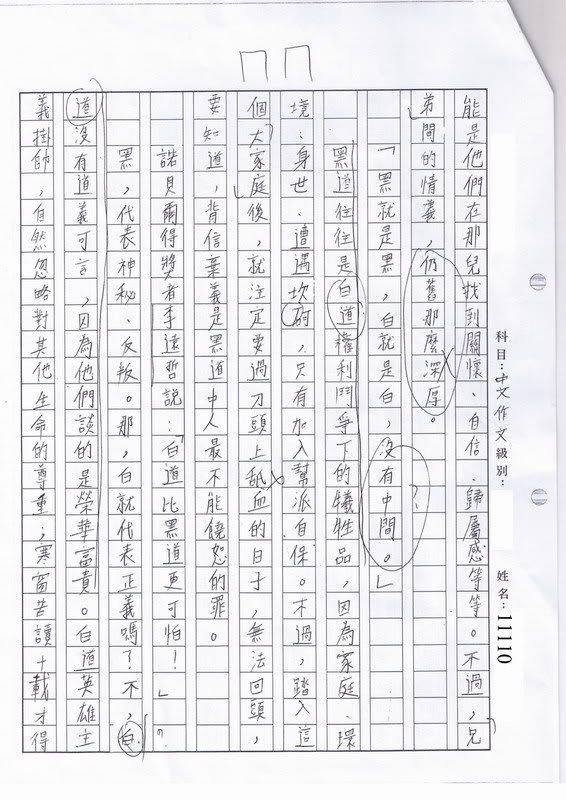 科目：中文作文級別：
姓名：11110
能是他們在那兒找到關懷、自信、歸屬感等等。不過，兄
弟間的情義，仍舊那麼深厚。
「黑就是黑，白就是白，沒有中間。」
?
黑道往往是白道權利鬥爭下的犧牲品，因為家庭、環
境、身世、遭遇坎，只有加入幫派自保。不過，踏入這
個大家庭後，就注定要過刀頭上舐血的日子，無法回頭，
要知道，背信棄義是黑道中人最不能饒恕的罪。
諾貝爾得獎者李遠哲說：「白道比黑道更可怕！」
?
黑，代表神秘、反叛。那，白就代表正義嗎？不，白
道沒有道義可言，因為他們談的是榮華富貴。白道英雄主
義掛帥，自然忽略對其他生命的尊重；寒窗苦讀十載才得